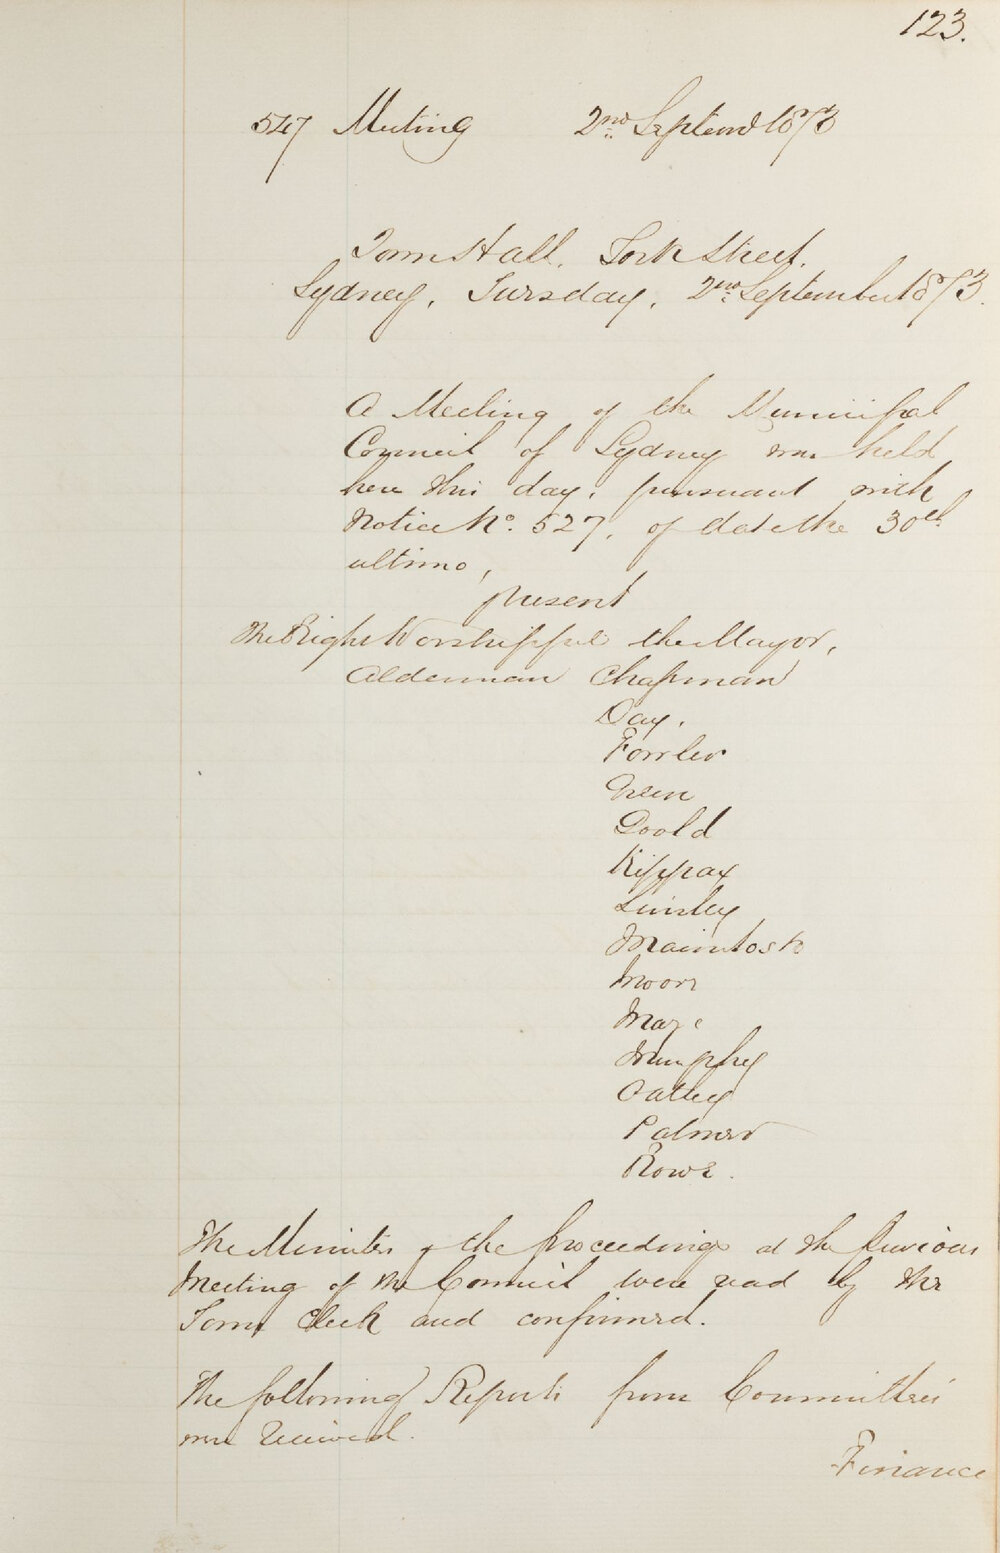 123.
547 Meeting 2nd Septemb 1873
Town Hall. York Street.
Sydney, Tuesday, 2nd September 1873.
A Meeting of the Municipal
Council of Sydney was held
here this day, pursuant with
Notice No. 527, of date the 30th
ultimo,
present
The Right Worshipful the Mayor,
Alderman Chapman
Day.
Fowler
Green
Goold
Kippax
Linsley
Macintosh
Moore
Maze
Murphy
Oatley
Palmer
Rowe.
The Minutes of the proceedings at the previous
Meeting of the Council were read by the
Town Clerk and confirmed.
The following Reports from Committees
were received.
Finance